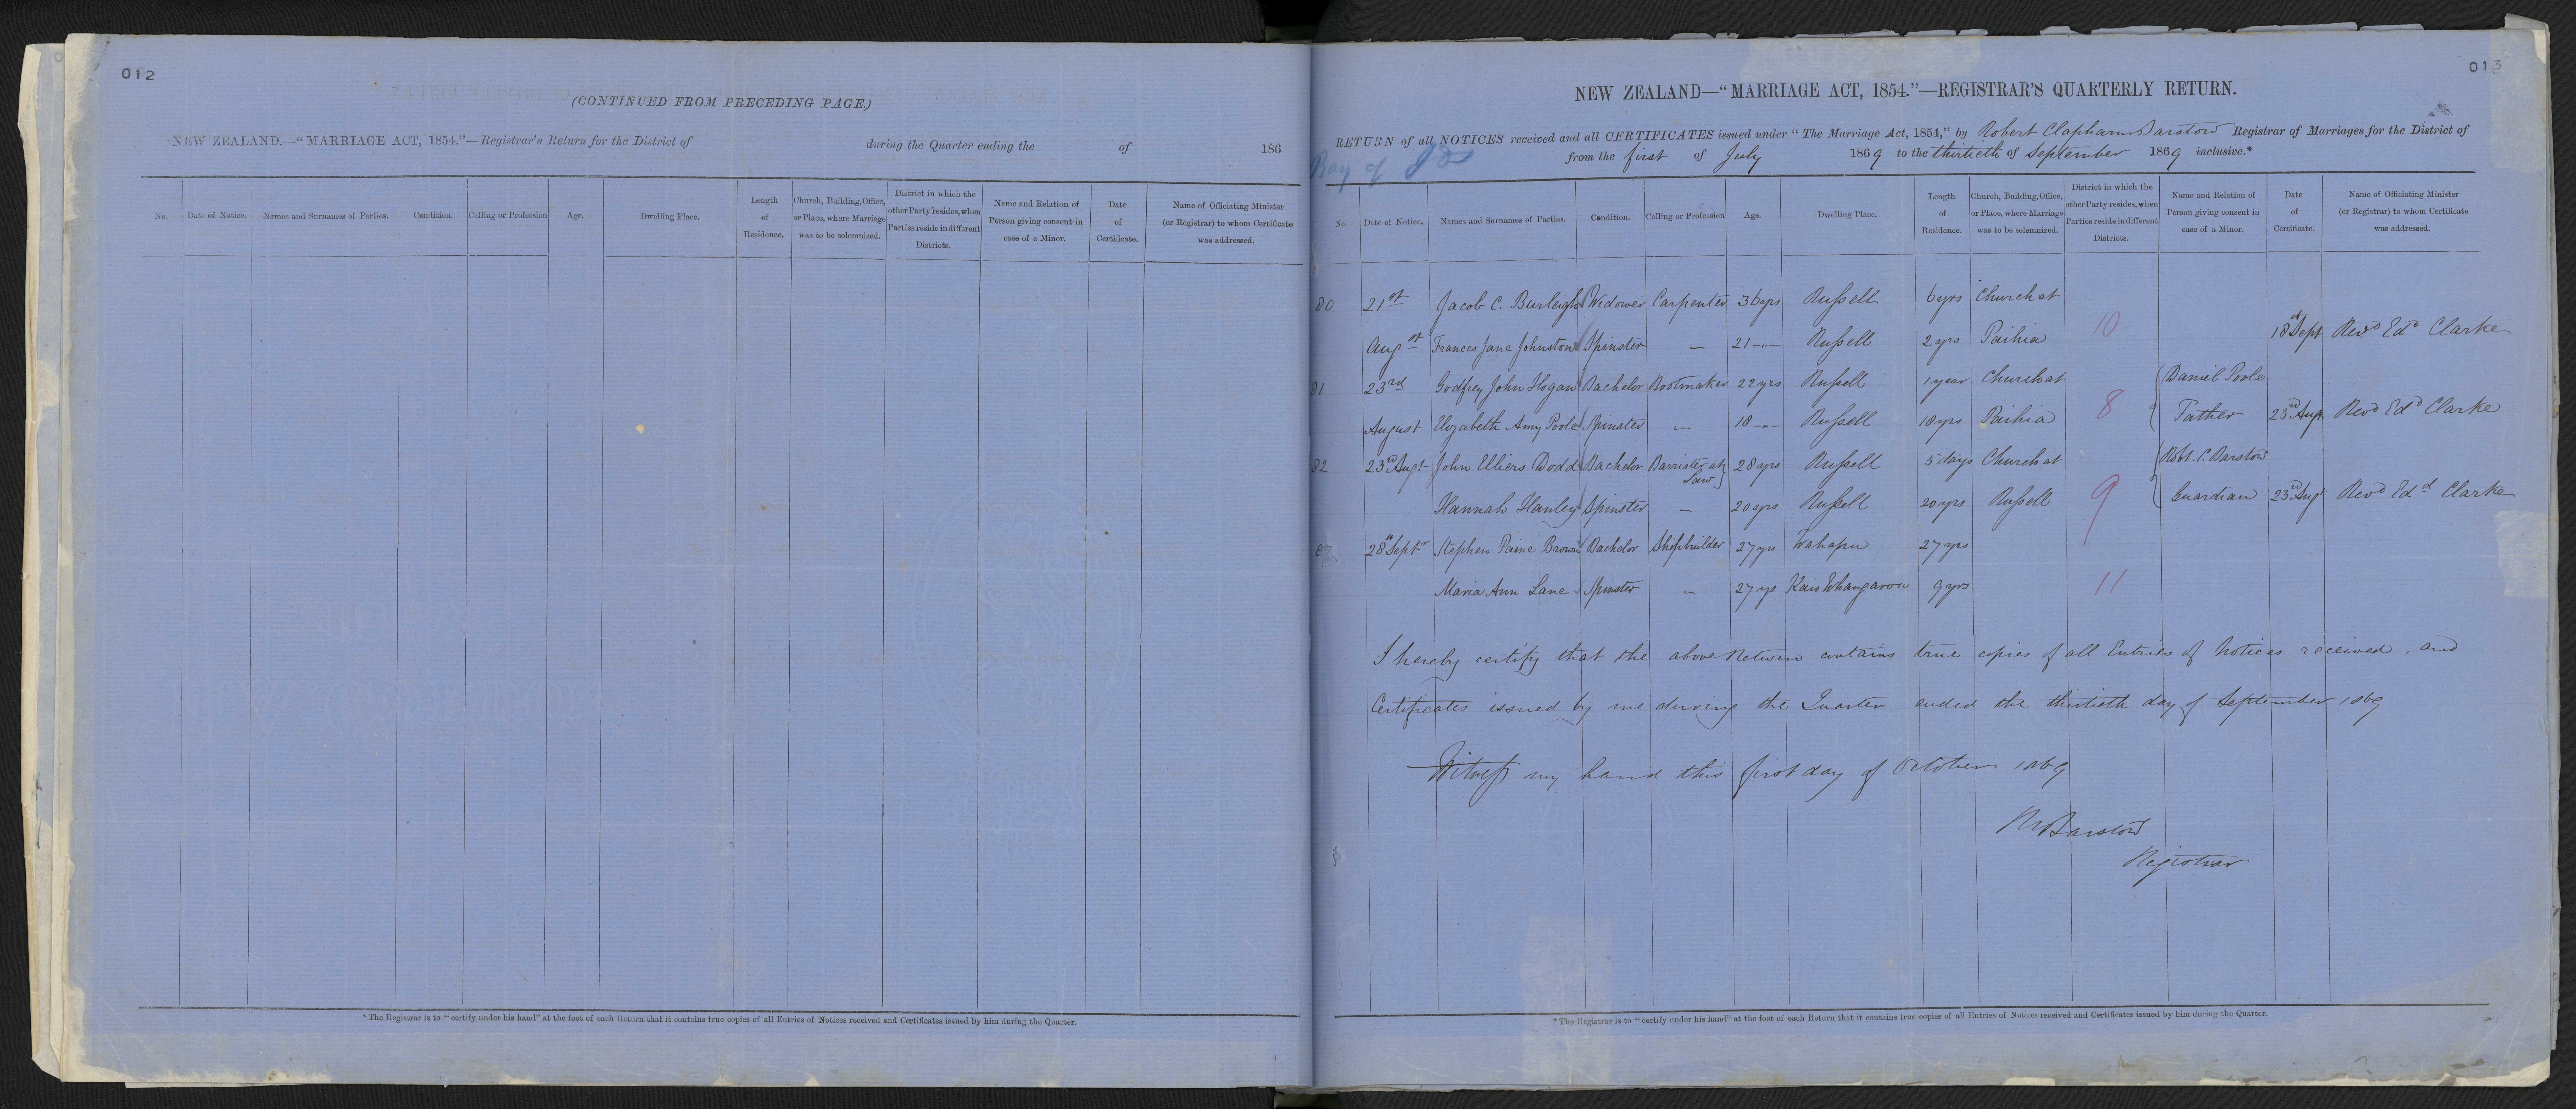 012
(CONTINUED FROM PRECEDING PAGE.)
NEW ZEALAND.—"MARRIAGE ACT, 1854."—Registrar's Return for the District of during the Quarter ending the of 186
No. Date of Notice. Names and Surnames of Parties. Condition. Calling or Profession Age. Dwelling Place. Length of Residence. Church, Building, Office, or Place, where Marriage was to be solemnized. District in which the other Party resides, when Parties reside in different Districts. Name and Relation of Person giving consent in case of a Minor. Date of Certificate. Name of Officiating Minister (or Registrar) to whom Certificate was addressed.
* The Registrar is to "certify under his hand" at the foot of each Return that it contains true copies of all Entries of Notices received and Certificates issued by him during the Quarter.
013
NEW ZEALAND—"MARRIAGE ACT, 1854."—REGISTRAR'S QUARTERLY RETURN.
RETURN of all NOTICES received and all CERTIFICATES issued under "The Marriage Act, 1854," by Robert Clapham Barstow Registrar of Marriages for the District of
Bay of Is from the first of July 1869 to the thirtieth of September 1869 inclusive.*
No. Date of Notice. Names and Surnames of Parties. Condition. Calling or Profession Age. Dwelling Place. Length of Residence. Church, Building, Office, or Place, where Marriage was to be solemnized. District in which the other Party resides, when Parties reside in different Districts. Name and Relation of Person giving consent in case of a Minor. Date of Certificate. Name of Officiating Minister (or Registrar) to whom Certificate was addressed.
80 21st Jacob C. Burleigh Widower Carpenter 36 yrs Russell 6 yrs Church at
Augst Frances Jane Johnston Spinster — 21 -"- Russell 2 yrs Paihia 10 18th Sept Revd Edd Clarke
81 23rd Godfrey John Hogan Bachelor Bootmaker 22 yrs Russell 1 year Church at Daniel Poole
August Elizabeth Amy Poole Spinster — 18 -"- Russell 18 yrs Paihia 8 Father 23rd Aug. Revd Edd Clarke
82 23rd Augt John Elliers Dodd Bachelor Barrister at Law 28 yrs Russell 5 days Church at Robt. C. Barstow
Hannah Hanley Spinster — 20 yrs Russell 20 yrs Russell 9 Guardian 23rd Aug. Revd Edd Clarke
28th Septr Stephen Paine Brown Bachelor Shipbuilder 27 yrs Wahapu 27 yrs
Maria Ann Lane Spinster — 27 yrs Whangaroa 9 yrs 11
I hereby certify that the above Return contains true copies of all Entries of Notices received and
Certificates issued by me during the Quarter ended the thirtieth day of September 1869
Witness my hand this first day of October 1869
R Barstow
Registrar
* The Registrar is to "certify under his hand" at the foot of each Return that it contains true copies of all Entries of Notices received and Certificates issued by him during the Quarter.